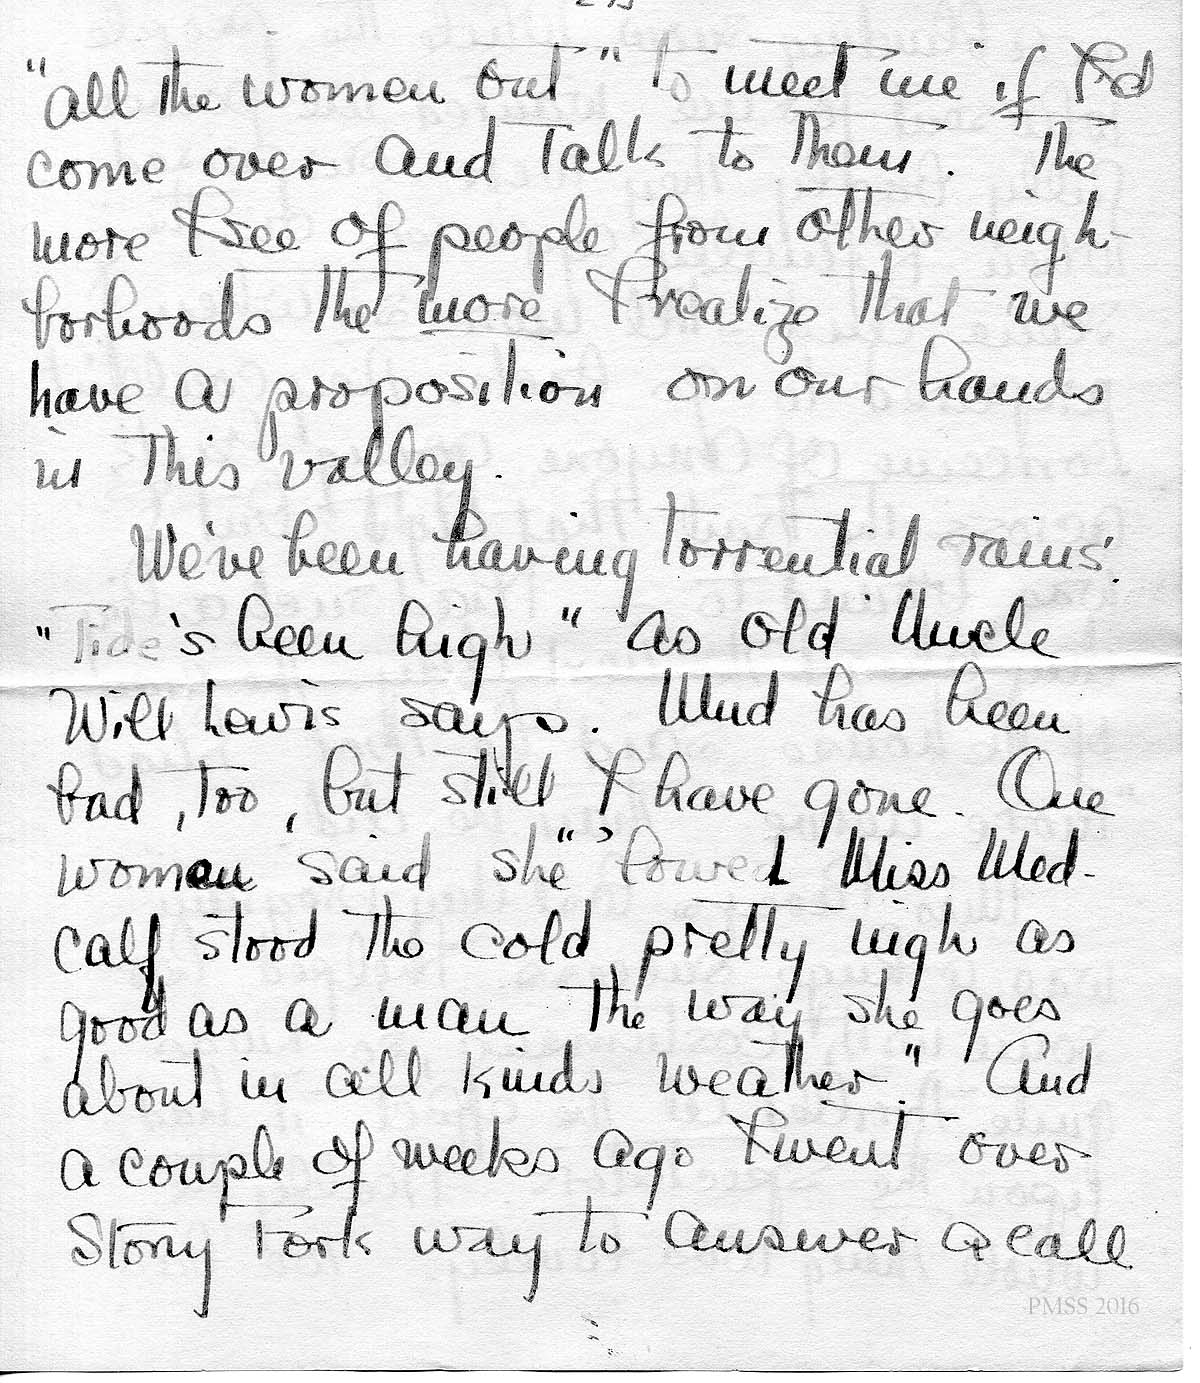 "all the women out" to meet me if I'd
come over and talk to them. The
more I see of people from other neigh-
borhoods the more I realize that we
have a proposition on our hands
in this valley.
We've been having torrential rains.
"Tide's been high" as old Uncle
Will Lewis says. Mud has been
bad, too, but still I have gone. One
woman said she "'lowed Miss Med-
calf stood the cold pretty nigh as
good as a man the way she goes
about in all kinds weather." And
a couple of weeks ago I went over
Stony Fork way to answer a call
PMSS 2016